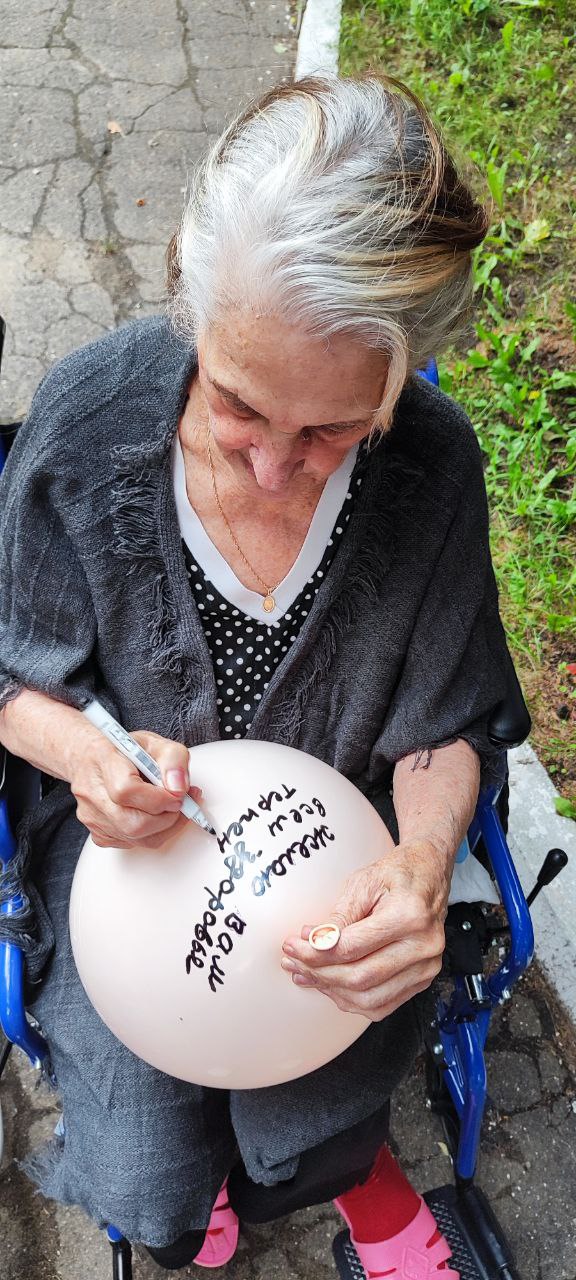 Желаю Вам
всем здоровье
Терпен